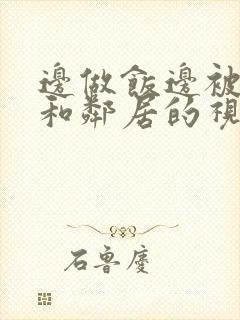 邊做飯邊被
和鄰居的視
石魯慶